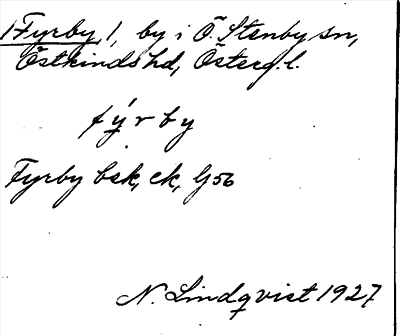 1 Fyrby 1, by i Ö. Stenby sn,
Östkinds hd, Österg. l.
fýrby
Fyrby bsk, ek, G56
N. Lindqvist 1927